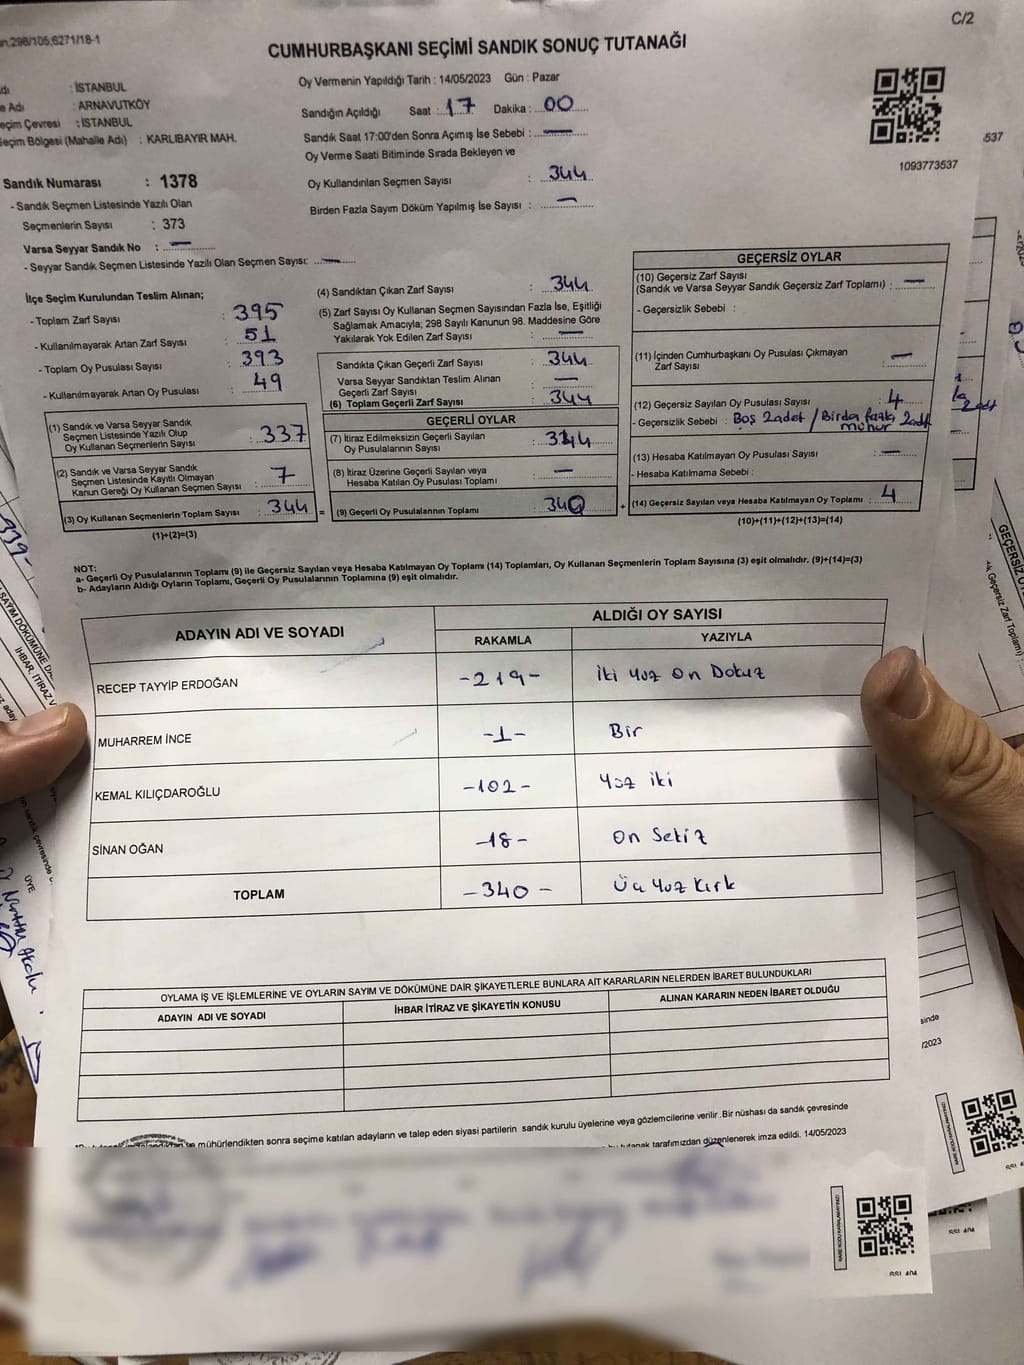 298/105;6271/18-1
C/2
CUMHURBAŞKANI SEÇİMİ SANDIK SONUÇ TUTANAĞI
: İSTANBUL
Adı : ARNAVUTKÖY
Seçim Çevresi : İSTANBUL
Seçim Bölgesi (Mahalle Adı) : KARLIBAYIR MAH.
Sandık Numarası : 1378
- Sandık Seçmen Listesinde Yazılı Olan
Seçmenlerin Sayısı : 373
Varsa Seyyar Sandık No : —
- Seyyar Sandık Seçmen Listesinde Yazılı Olan Seçmen Sayısı: —
Oy Vermenin Yapıldığı Tarih : 14/05/2023 Gün : Pazar
Sandığın Açıldığı Saat : 17 Dakika : 00
Sandık Saat 17:00'den Sonra Açımış İse Sebebi : —
Oy Verme Saati Bitiminde Sırada Bekleyen ve
Oy Kullandırılan Seçmen Sayısı : 344
Birden Fazla Sayım Döküm Yapılmış İse Sayısı : —
1093773537
537
İlçe Seçim Kurulundan Teslim Alınan;
- Toplam Zarf Sayısı : 395
- Kullanılmayarak Artan Zarf Sayısı : 51
- Toplam Oy Pusulası Sayısı : 393
- Kullanılmayarak Artan Oy Pusulası : 49
(1) Sandık ve Varsa Seyyar Sandık
Seçmen Listesinde Yazılı Olup
Oy Kullanan Seçmenlerin Sayısı : 337
(2) Sandık ve Varsa Seyyar Sandık
Seçmen Listesinde Kayıtlı Olmayan
Kanun Gereği Oy Kullanan Seçmen Sayısı : 7
(3) Oy Kullanan Seçmenlerin Toplam Sayısı : 344 =
(1)+(2)=(3)
(4) Sandıktan Çıkan Zarf Sayısı : 344
(5) Zarf Sayısı Oy Kullanan Seçmen Sayısından Fazla İse, Eşitliği
Sağlamak Amacıyla; 298 Sayılı Kanunun 98. Maddesine Göre
Yakılarak Yok Edilen Zarf Sayısı : —
Sandıkta Çıkan Geçerli Zarf Sayısı : 344
Varsa Seyyar Sandıktan Teslim Alınan
Geçerli Zarf Sayısı : —
(6) Toplam Geçerli Zarf Sayısı : 344
GEÇERLİ OYLAR
(7) İtiraz Edilmeksizin Geçerli Sayılan
Oy Pusulalarının Sayısı : 344
(8) İtiraz Üzerine Geçerli Sayılan veya
Hesaba Katılan Oy Pusulası Toplamı : —
(9) Geçerli Oy Pusulalarının Toplamı : 340 +
GEÇERSİZ OYLAR
(10) Geçersiz Zarf Sayısı
(Sandık ve Varsa Seyyar Sandık Geçersiz Zarf Toplamı) : —
- Geçersizlik Sebebi :
(11) İçinden Cumhurbaşkanı Oy Pusulası Çıkmayan
Zarf Sayısı : —
(12) Geçersiz Sayılan Oy Pusulası Sayısı : 4
- Geçersizlik Sebebi : Boş 2 adet / Birden fazla 2 adt
mühür
(13) Hesaba Katılmayan Oy Pusulası Sayısı : —
- Hesaba Katılmama Sebebi :
(14) Geçersiz Sayılan veya Hesaba Katılmayan Oy Toplamı : 4
(10)+(11)+(12)+(13)=(14)
NOT:
a- Geçerli Oy Pusulalarının Toplamı (9) ile Geçersiz Sayılan veya Hesaba Katılmayan Oy Toplamı (14) Toplamları, Oy Kullanan Seçmenlerin Toplam Sayısına (3) eşit olmalıdır. (9)+(14)=(3)
b- Adayların Aldığı Oyların Toplamı, Geçerli Oy Pusulalarının Toplamına (9) eşit olmalıdır.
ADAYIN ADI VE SOYADI ALDIĞI OY SAYISI
RAKAMLA YAZIYLA
RECEP TAYYİP ERDOĞAN -219- İki Yüz On Dokuz
MUHARREM İNCE -1- Bir
KEMAL KILIÇDAROĞLU -102- Yüz iki
SİNAN OĞAN -18- On Sekiz
TOPLAM -340- Üç Yüz Kırk
OYLAMA İŞ VE İŞLEMLERİNE VE OYLARIN SAYIM VE DÖKÜMÜNE DAİR ŞİKAYETLERLE BUNLARA AİT KARARLARIN NELERDEN İBARET BULUNDUKLARI
ADAYIN ADI VE SOYADI İHBAR İTİRAZ VE ŞİKAYETİN KONUSU ALINAN KARARIN NEDEN İBARET OLDUĞU
mühürlendikten sonra seçime katılan adayların ve talep eden siyasi partilerin sandık kurulu üyelerine veya gözlemcilerine verilir .Bir nüshası da sandık çevresinde
tutanak tarafımızdan düzenlenerek imza edildi. 14/05/2023